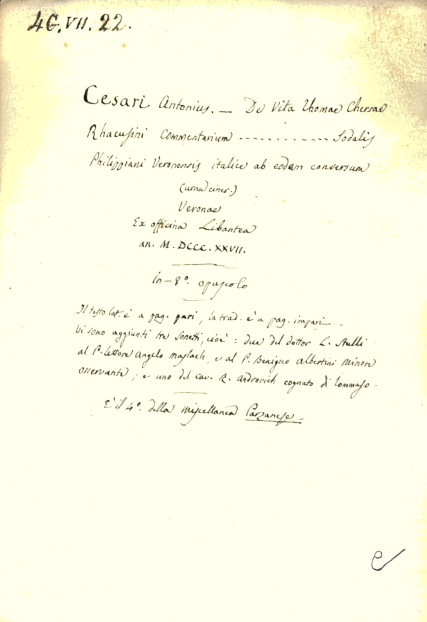 46.VII.22.
Cesari Antonius. — De Vita Thomae Chersae
Rhacusini Commentarium ............ Sodalis
Philippiani Veronensis italice ab eodem conversum
(urna ciner.)
Veronae
Ex officina Libantea
an. M.DCCC.XXVII.
in-8º. opuscolo
Il testo lat. è a pag. pari, la trad. è a pag. impari.
Vi sono aggiunti tre sonetti, cioè: due del dottor L. Stulli
al P. Lettore Angelo Maslach, e al P. Benigno Albertini Minore
osservante; e uno del cav. R. Androvich cognato di Tommaso.
È il 4º. della miscellanea Parzanese.